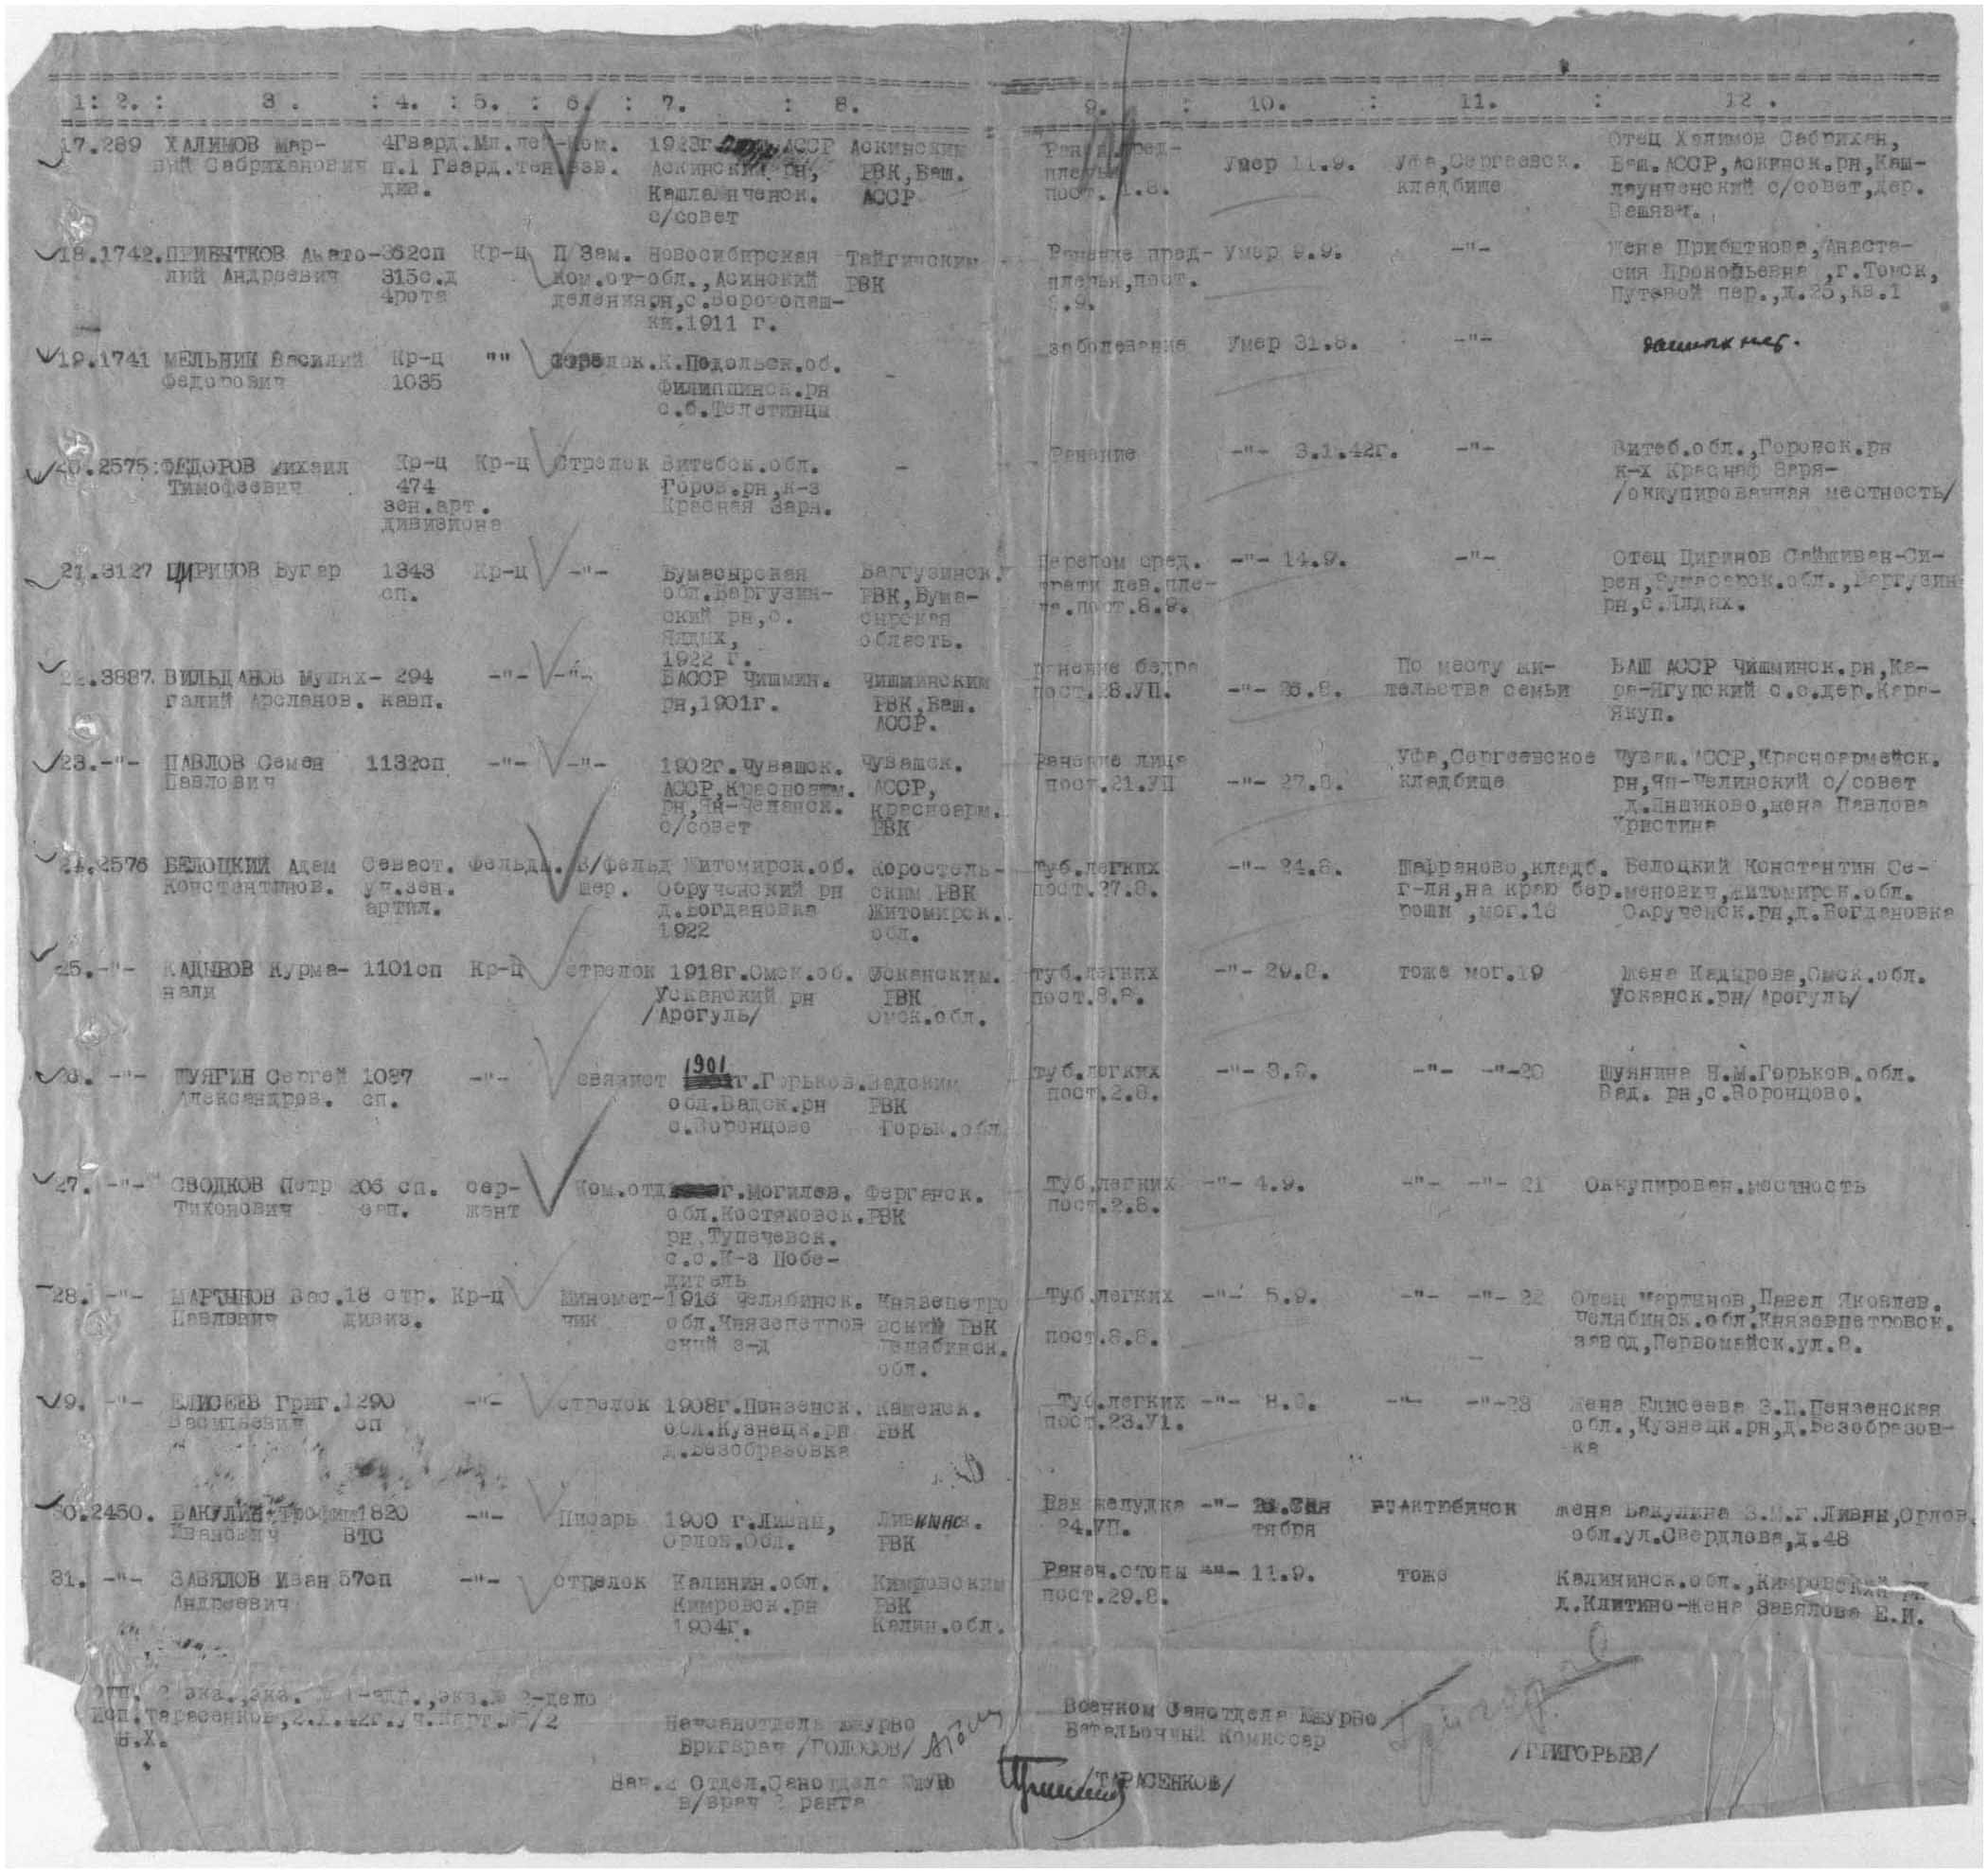 1: 2. : 3. : 4. : 5. : 6. : 7. : 8. 9. : 10. : 11. : 12.
17.289 ХАЛИМОВ Мар- 4Гвард. Мл.лей- Ком. 1923г. АССР Аскинским Умер 11.9. Уфа,Сергеевск. Отец Халимов Сабрихан,
вий Сабриханович п.1 Гвард. тен. взв. Аскинский рн, РВК,Баш. кладбище Баш.АССР,Аскинск.рн,Каш-
див. Кашлаинченск. АССР пост. 1.8. лаунченский с/совет,дер.
с/совет
18.1742.ПРИБЫТКОВ Анато- 362сп Кр-ц П/Зам. Новосибирская Тайгинским Ранение пред- Умер 9.9. -"- Жена Прибыткова,Анаста-
лий Андреевич 315с.д Ком.от- обл.,Асинский РВК плечья,пост. сия Прокофьевна,г.Томск,
4рота деления рн,с.Воронопаш- Путевой пер.,д.25,кв.1
ки.1911 г.
19.1741 МЕЛЬНИК Василий Кр-ц "" К.Подольск.об. - заболевание Умер 31.8. -"- данных нет.
Федорович 1035 Филиппинск.рн
с.б.Телетинцы
20.2575:ФЕДОРОВ Михаил Кр-ц Кр-ц Стрелок Витебск.обл. - Ранение -"- 3.1.42г. -"- Витеб.обл.,Горовск.рн
Тимофеевич 474 Горов.рн,к-з к-х Красная Заря-
зен.арт. Красная Заря. /оккупированная местность/
дивизиона
21.3127 ЦИРИНОВ Бугар 1343 Кр-ц -"- Бумасырская Баргузинск. Перелом сред. -"- 14.9. -"- Отец Циринов Саймиван-Си-
сп. обл.Баргузин- РВК,Бума- трети лев.пле-
ский рн,с. сырская ча.пост.8.9. рн,с.Ялдых.
Ялдых, область.
1922 г.
22.3887. ВИЛЬДАНОВ Мулях- 294 -"- -"- БАССР Чишмин. Чишминским ранение бедра По месту жи- БАШ АССР Чишминск.рн,Ка-
галий Арсланов. кавп. рн,1901г. РВК,Баш. пост.28.УП. -"- 26.8. тельства семьи ра-Ягупский с.с.дер.Кара-
АССР. Якуп.
23.-"- ПАВЛОВ Семен 1132сп -"- -"- 1902г.Чувашск. Чувашск. Ранение лица Уфа,Сергеевское Чуваш.АССР,Красноармейск.
Павлович АССР,Красноарм. АССР, пост.21.УП -"- 27.8. кладбище рн,Ян-Челинский с/совет
рн,Ян-Челанск. Красноарм. д.Яншиково,жена Павлова
с/совет РВК Христина
24.2576 БЕЛОЦКИЙ Адам Севаст. Фельдш. В/фельд Житомирск.об. Коростель- Туб.легких -"- 24.8. Шафраново,кладб. Белоцкий Константин Се-
Константинов. уч.зен. шер. Овручский рн ским РВК пост.27.8. г-ля,на краю бер. менович,Житомирск.обл.
артил. д.Богдановка Житомирск. рощи ,мог.18 Оврученск.рн,д.Богдановка
1922 обл.
25.-"- КАДЫРОВ Курма- 1101сп Кр-ц стрелок 1918г.Омск.об. Усканским. туб.легких -"- 29.8. тоже мог.19 Жена Кадырова,Омск.обл.
нали Усканский рн РВК пост.8.8. Усканск.рн/Арогуль/
/Арогуль/ Омск.обл.
26. -"- ШУЯГИН Сергей 1087 -"- связист 1901 г.Горьков. Вадским туб.легких -"- 3.9. -"- -"-20 Шуянина Н.М.Горьков.обл.
Александров. сп. обл.Вадск.рн РВК пост.2.8. Вад. рн,с.Воронцово.
с.Воронцово Горьк.обл
27. -"- СВОДКОВ Петр 206 сп. сер- Ком.отд г.Могилев. Ферганск. Туб.легких -"- 4.9. -"- -"- 21 Оккупирован.местность
Тихонович зап. жант обл.Костяковск. РВК пост.2.8.
рн,Тупечевск.
с.с.К-з Побе-
дитель
28. -"- МАРТЫНОВ Вас. 18 стр. Кр-ц Миномет- 1913 Челябинск. Князепетро Туб.легких -"- 5.9. -"- -"- 22 Отец Мартынов,Павел Яковлев.
Павлович дивиз. чик обл.Князепетров вский РВК Челябинск.обл.Князевпетровск.
ский з-д Челябинск. пост.8.8. завод,Первомайск.ул.8.
обл.
29. -"- ЕЛИСЕЕВ Григ. 1290 -"- стрелок 1908г.Пензенск. Каменск. Туб.легких -"- 8.9. -"- -"-23 Жена Елисеева З.П.Пензенская
Васильевич сп обл.Кузнецк.рн РВК пост.23.У1. обл.,Кузнецк.рн,д.Безобразов-
д.Безобразовка ка
30.2450. ВАКУЛИН Трофим 1820 -"- Писарь 1900 г.Ливны, Рак желудка -"- Актюбинск жена Вакулина З.М.г.Ливны,Орлов.
Иванович ВТС Орлов.Обл. РВК 24.УП. тября обл.ул.Свердлова,д.48
31. -"- ЗАВЯЛОВ Иван 57сп -"- стрелок Калинин.обл. Кимровским Ранен.стопы -"- 11.9. тоже Калининск.обл.,Кимровский рн
Андреевич Кимровск.рн РВК пост.29.8. д.Клитино-жена Завялова Е.И.
1904г. Калин.обл.
Отп. 2 экз.,экз. № 1-адр.,экз.№ 2-дело
Исп.Тарасенков,2.X.42г.
н.Х.
Начсанотдела ЮжурВО
Бригврач /ГОЛОСОВ/
Военком Санотдела ЮжурВО
Батальонный Комиссар /ГРИГОРЬЕВ/
Нач.2 Отдел.Санотдела
в/врач 2 ранга /ТАРАСЕНКОВ/